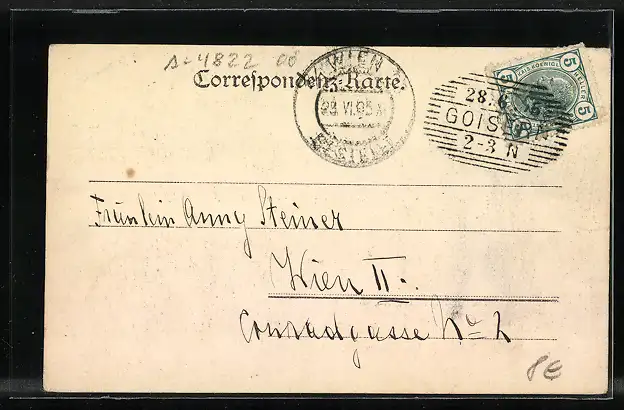 A-4822 00
WIEN 1
Correspondenz-Karte.
28.VI.05.
BESTELLT
28.6.05
GOISERN
2-3 N
5 KAIS. KOENIGL. 5
5 HELLER 5
Fräulein Anny Steiner
Wien II.
Conradgasse No 2
8€